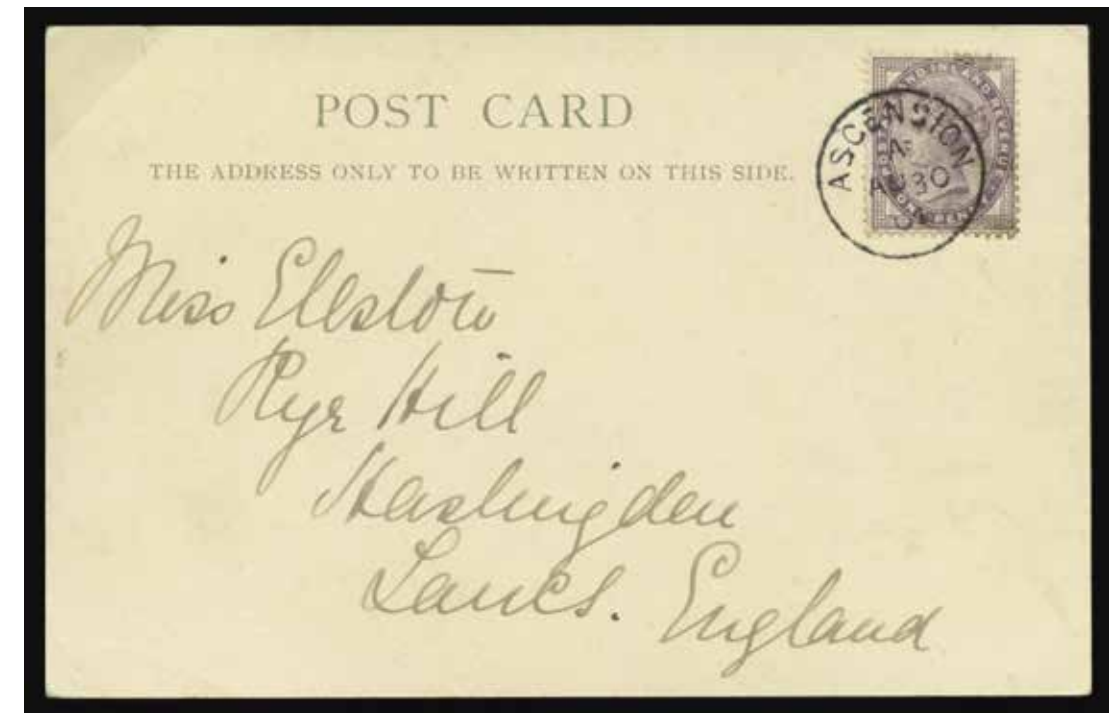 POST CARD
THE ADDRESS ONLY TO BE WRITTEN ON THIS SIDE.
ASCENSION
AU 30
Miss
Rye Hill
Haslingden
Lancs. England